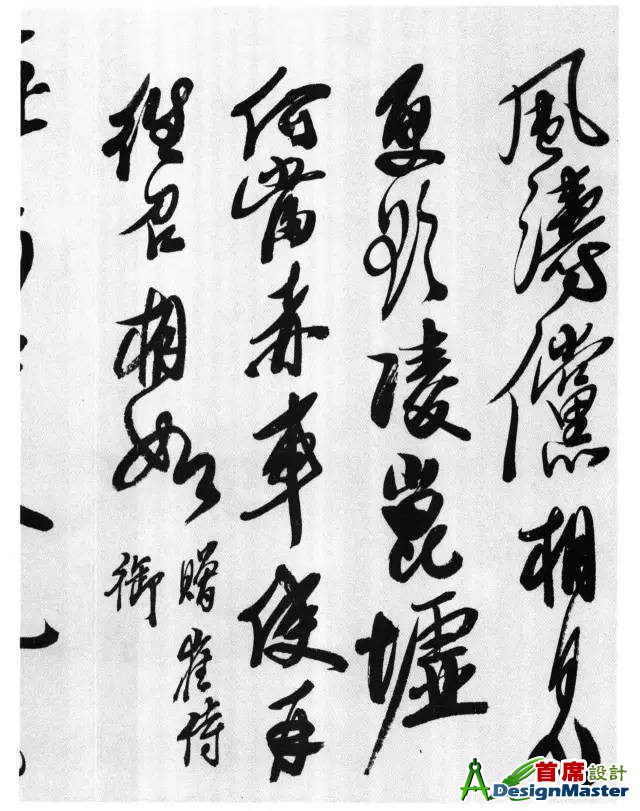 風濤儻相見
更欲陵崑墟
何當赤車使再
往召相如
贈崔侍
御
首席設計
DesignMaster